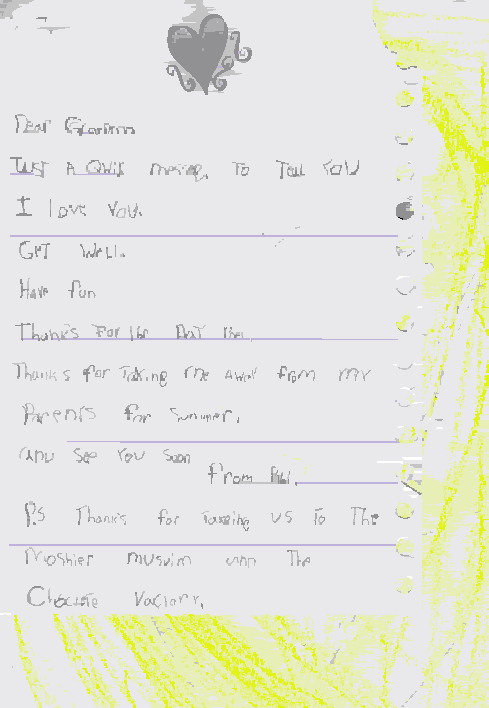 Dear Gramm
JUST A QWIK mesage TO Tell YOU
I love You.
GET Well.
Have fun
Thanks For the
Thanks for Taking me away from my
Parents for summer.
and See You Soon
from
P.S Thanks for Tanking US To The
Moshier musuim and The
Choclate Vactary.